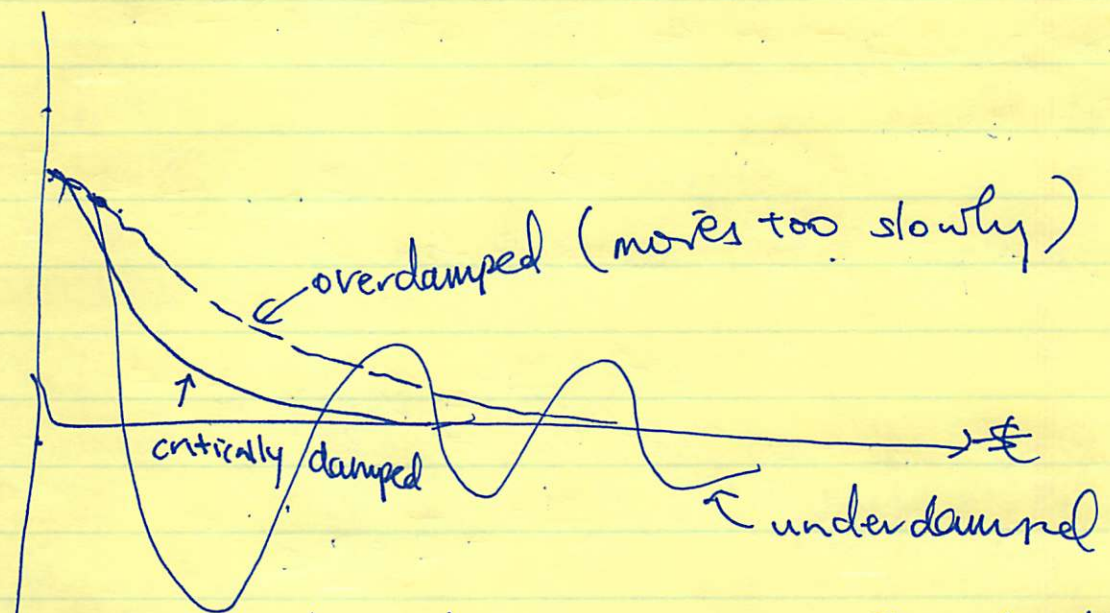 overdamped (moves too slowly)
t
critically damped
underdamped